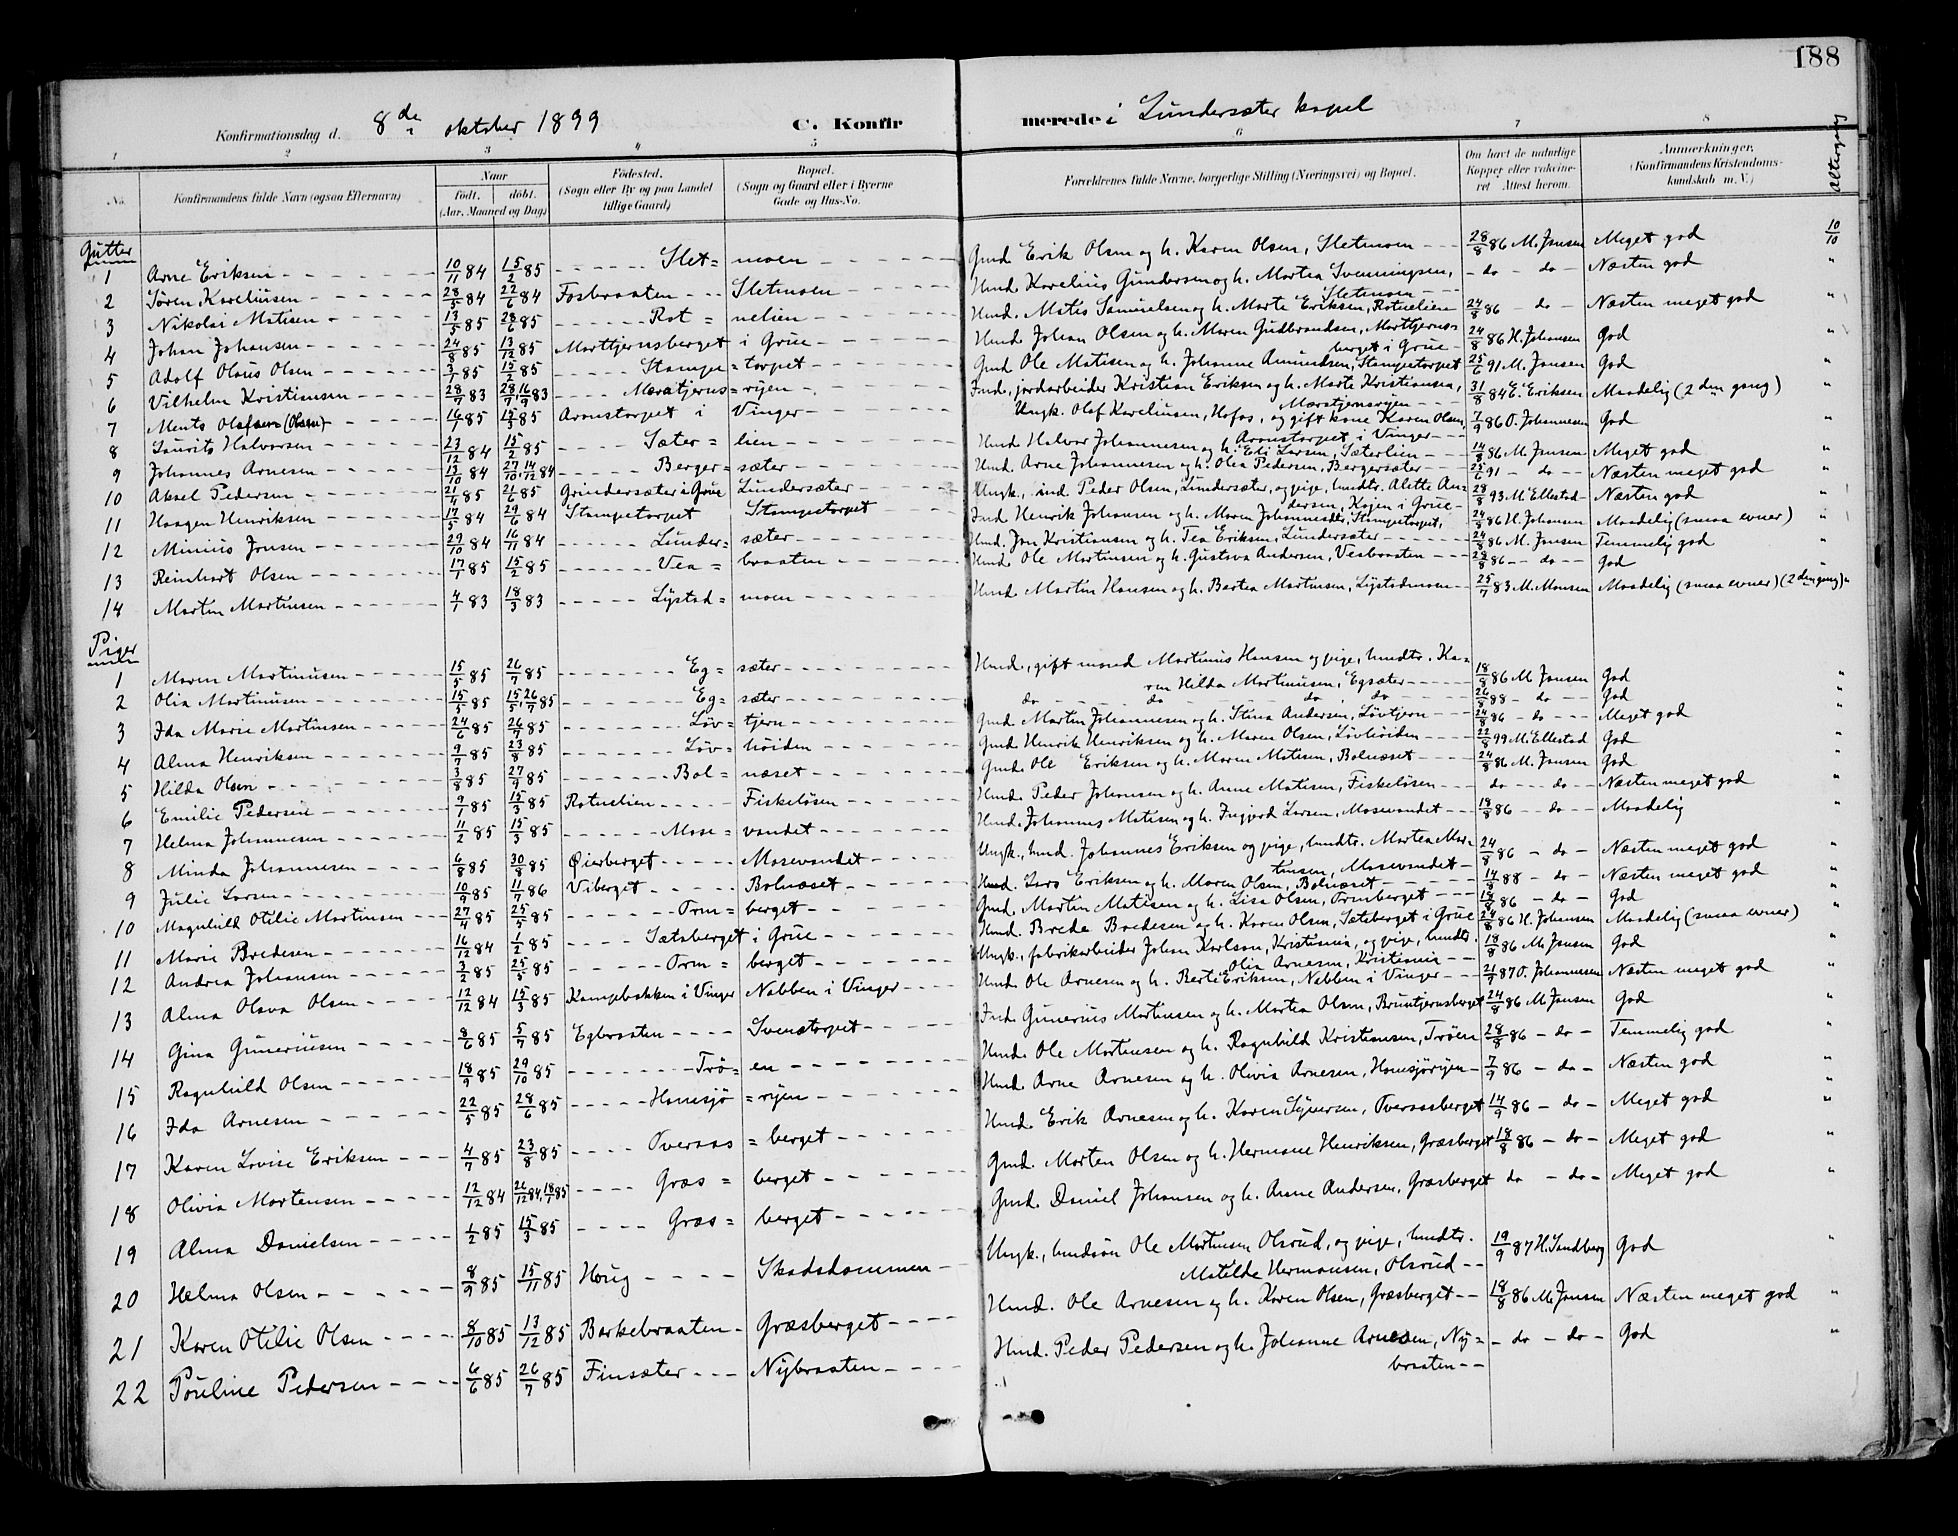 188
Konfirmationsdag d. 8de oktober 1899 C. Konfirmerede i Lundersæter kapel
1 2 3 4 5 6 7 8
No. Konfirmandens fulde Navn (ogsaa Efternavn) Naar født, døbt. (Aar, Maaned og Dag) Fødested. (Sogn eller By og paa Landet tillige Gaard) Bopæl. (Sogn og Gaard eller i Byerne Gade og Hus-No. Forældrenes fulde Navne, borgerlige Stilling (Næringsvei) og Bopæl. Om havt de naturlige Kopper eller vakcineret Attest herom. Anmærkninger. (Konfirmandens Kristendomskundskab m. V.) Altergang
Gutter
1 Arne Eriksen 10/11 84 15/2 85 Slet= moen Gmd Erik Olsen og h. Karen Olsen, Sletmoen 28/8 86 M. Jansen Meget god 10/10
2 Søren Kareliusen 28/5 84 22/6 84 Fosbraaten Sletmoen Hmd. Karelius Gundersen og h. Martea Svenningsen, Sletmoen - do - do - Næsten god "
3 Nikolai Matisen 13/5 85 28/6 85 Rot= nelien Hmd. Matis Samuelsen og h. Marte Eriksen, Rotnelien 24/8 86 - do - Næsten meget god "
4 Johan Johansen 24/8 85 13/12 85 Morttjernsberget i Grue Hmd Johan Olsen og h. Maren Gudbrandsen, Morttjernsberget i Grue 24/8 86 H. Johansen God "
5 Adolf Olaus Olsen 3/1 85 15/2 85 Stampe= torpet Gmd Ole Matisen og h. Johanne Amundsen, Stampetorpet 25/6 91 M. Jansen God "
6 Vilhelm Kristiansen 28/7 83 28/7, 16/9 83 Mæratjerns= ryen Ind., jordarbeider Kristian Eriksen og h. Marte Kristiansen, Mærstjernsryen 31/8 84 E. Eriksen Maadelig (2den gang) "
7 Ments Olafsen (Olsen) 16/1 85 15/3 85 Arnstorpet i Vinger Ungk. Olaf Kareliusen, Hofos, og gift kone Karen Olsen, Arnstorpet i Vinger 7/9 86 O. Johannesen God
8 Laurits Halvorsen 23/12 84 15/2 85 Sæter= lien Hmd Halvor Johannesen og h. Edi Larsen, Sæterlien 14/8 86 M. Jansen Meget god "
9 Johannes Arnesen 13/10 84 27/10, 14/12 84 Berger= sæter Hmd. Arne Johannesen og h. Olea Pedersen, Bergersæter 25/6 91 - do - Næsten meget god "
10 Aksel Pedersen 21/4 85 21/6 85 Grindersæter i Grue Lundersæter Ungk., ind. Peder Olsen, Lundersæter, og pige, hmdtr. Alette Andersen, Kojen i Grue 28/8 93 M. Ellestad Næsten god "
11 Haagen Henriksen 17/5 84 29/6 84 Stampetorpet Stampetorpet Ind Henrik Johansen og h. Maren Johannesdtr, Stampetorpet, 24/8 86 H. Johansen Maadelig (smaa evner) "
12 Minius Jonsen 29/10 84 16/11 84 Lunder= sæter Hmd. Jon Kristiansen og h. Tea Eriksen, Lundersæter 24/8 86 M. Jansen Temmelig god "
13 Reinhart Olsen 17/1 85 15/2 85 Vea= braaten Hmd. Ole Martinsen og h. Gustava Andersen, Veabraaten 28/8 86 - do - God "
14 Martin Martinsen 4/1 83 18/3 83 Lystad= moen Hmd Martin Hansen og h. Bertea Martinsen, Lystadmoen 25/7 83 M. Monsen Maadelig (smaa evner) (2den gang) "
Piger
1 Maren Martinusen 15/5 85 26/7 85 Eg= sæter Hmd., gift mand Martinus Hansen og pige, hmdtr. Karen Hilda Martinusen, Egsæter 18/8 86 M. Jansen God "
2 Olia Martinusen 15/5 85 15/5, 26/7 85 Eg= sæter do do do do 26/8 88 - do - God "
3 Ida Marie Martinsen 24/6 85 26/7 85 Løv= tjern Gmd. Martin Johannesen og h. Stina Andersen, Løvtjern 24/8 86 - do - Meget god "
4 Alma Henriksen 9/7 85 23/8 85 Løv= høiden Gmd Henrik Henriksen og h. Maren Olsen, Løvhøiden 22/8 99 M. Ellestad God
5 Hilda Olsen 3/8 85 27/9 85 Bol= næset Gmd Ole Eriksen og h. Maren Matisen, Bolnæset 24/8 86 M. Jansen God "
6 Emilie Pedersen 9/1 85 15/3 85 Rotnelien Fiskeløsen Hmd. Peder Johansen og h. Anne Matisen, Fiskeløsen do - do - Næsten meget god "
7 Helma Johannesen 11/2 85 15/3 85 Mose= vandet Hmd. Johannes Matisen og h. Ingjerd Larsen, Mosevandet 18/8 86 - do - Maadelig "
8 Minda Johannesen 6/8 85 30/8 85 Øierberget Mosevandet Ungk., hmd. Johannes Eriksen og pige, hmdtr. Martea Martinsen, Mosevandet 24/8 86 - do - Næsten meget god "
9 Julie Larsen 10/9 85 11/7 86 Viberget Bolnæset Hmd. Lars Eriksen og h. Maren Olsen, Bolnæset 14/8 88 - do - Næsten meget god "
10 Magnhild Otilie Martinsen 27/4 85 25/5 85 Orm= berget Gmd. Martin Matisen og h. Lisa Olsen, Ormberget 18/8 86 - do - God "
11 Marie Bredesen 16/12 84 1/2 85 Sætaberget i Grue Hmd. Brede Bredesen og h. Karen Olsen, Sætaberget i Grue 24/8 86 H. Johansen Maadelig (smaa evner) "
12 Andrea Johansen 3/2 85 25/5 85 Orm= berget Ungk., fabrikarbeider Johan Karlson, Kristiania, og pige, hmdtr. Olia Arnesen, Kristiania 18/8 86 M. Jansen God "
13 Alma Olava Olsen 12/12 84 15/3 85 Kampebakken i Vinger Nabben i Vinger Hmd Ole Arnesen og h. Berte Eriksen, Nabben i Vinger 21/7 87 O. Johannessen Næsten meget god "
14 Gina Guneriusen 8/6 85 5/7 85 Egbraaten Svenstorpet Ind. Gunerius Martinsen og h. Martea Olsen, Bruntjernsberget 24/8 86 M. Jansen God "
15 Ragnhild Olsen 18/9 85 29/10 85 Trø= en Hmd Ole Mortensen og h. Ragnhild Kristiansen, Trøen 28/8 86 - do - Temmelig god "
16 Ida Arnesen 22/5 85 28/6 85 Honesjø= ryen Hmd Arne Arnesen og h. Olivia Arnesen, Honesjøryen 7/9 86 - do - Næsten god "
17 Karen Lovise Eriksen 4/7 85 23/8 85 Tversas= berget Hmd. Erik Arnesen og h. Karen Syversen, Tversasberget 14/9 86 - do - Meget god "
18 Olivia Mortensen 12/12 84 26/12 84, 18/1 85 Græs= berget Gmd. Morten Olsen og h. Hermane Henriksen, Græsberget 18/8 86 - do - Meget god "
19 Alma Danielsen 1/2 85 15/3 85 Græs= berget Gmd. Daniel Johansen og h. Anne Andersen, Græsberget do - do - Meget god "
20 Helma Olsen 8/9 85 15/11 85 Houg Skadsdammen Ungk., hmdsøn Ole Martinsen Olsrud, og pige, hmdtr. Matilde Hermansen, Olsrud 19/9 87 H. Sandberg God "
21 Karen Otilie Olsen 8/10 85 13/12 85 Barkebraaten Græsberget Hmd. Ole Arnesen og h. Karen Olsen, Græsberget 18/8 86 M. Jansen Næsten meget god "
22 Pouline Pedersen 6/6 85 26/7 85 Finsæter Nybraaten Hmd. Peder Pedersen og h. Johanne Arnesen, Nybraaten - do - do - God "